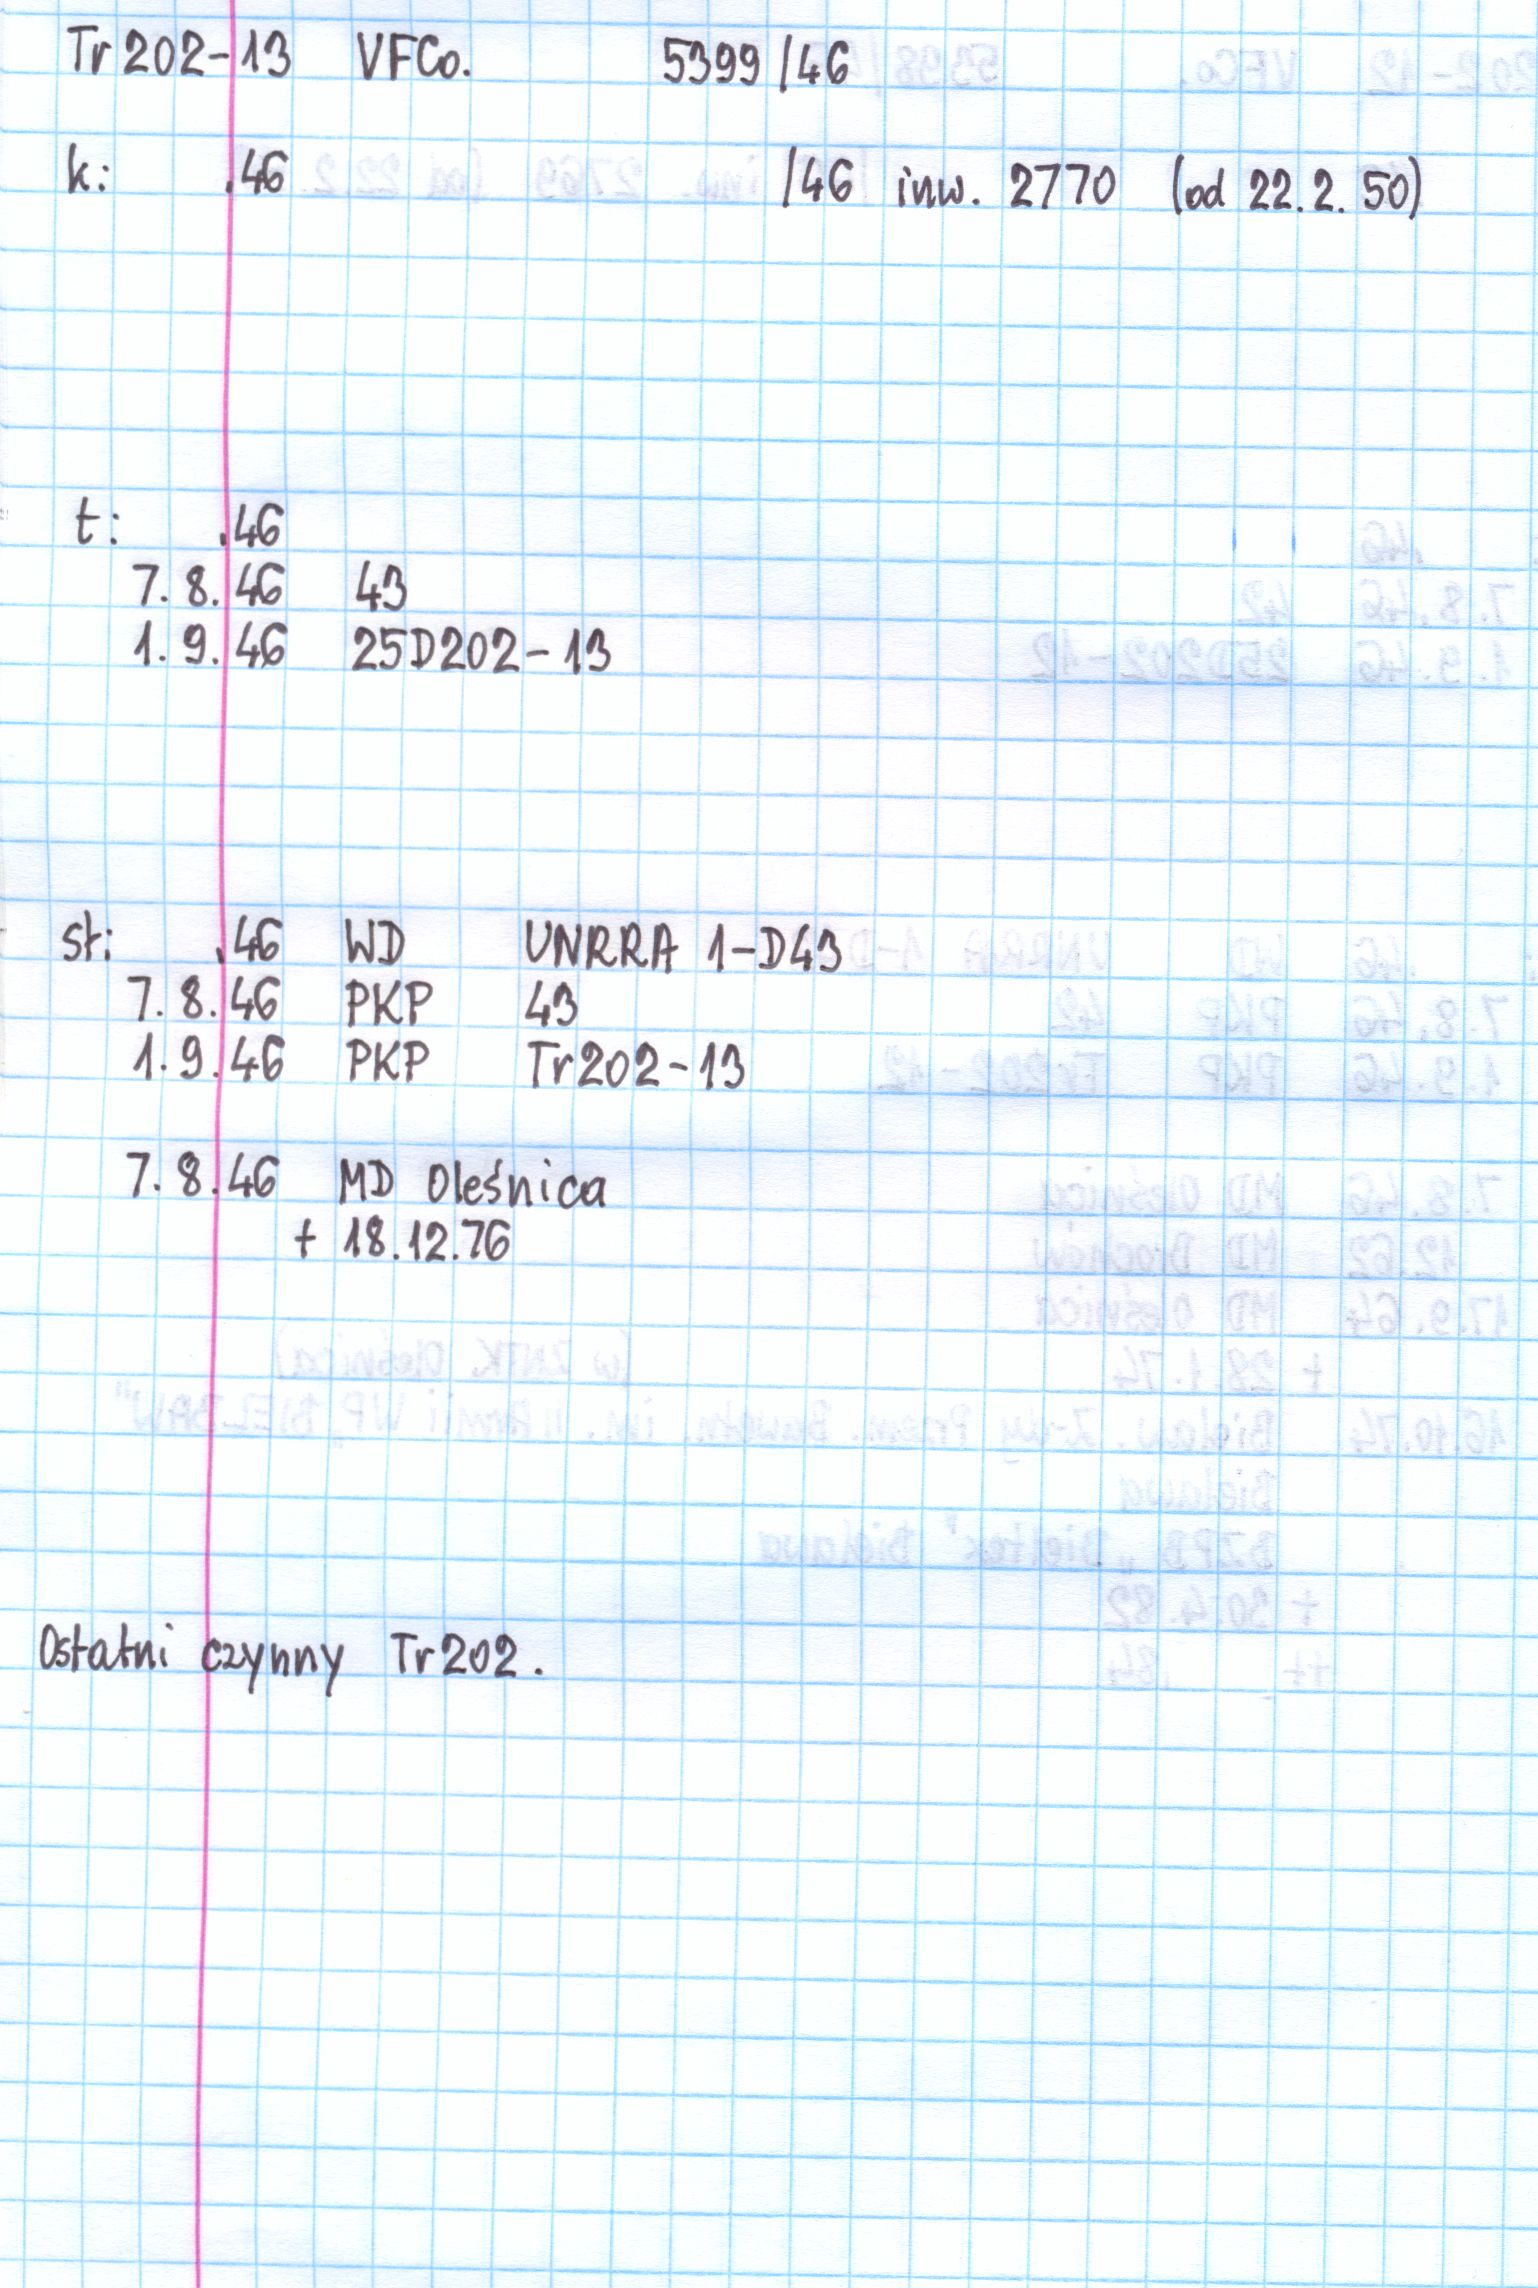 Tr202-13 VFCo. 5399/46
k: .46 /46 inw. 2770 (od 22.2.50)
t: .46
7.8.46 43
1.9.46 25D202-13
st: .46 WD UNRRA 1-D43
7.8.46 PKP 43
1.9.46 PKP Tr202-13
7.8.46 MD Oleśnica
+ 18.12.76
Ostatni czynny Tr202.